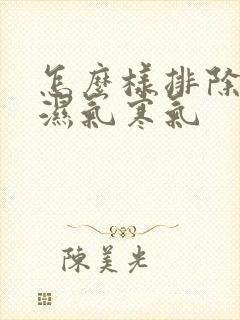 怎麼樣排除
濕氣寒氣
陳美光